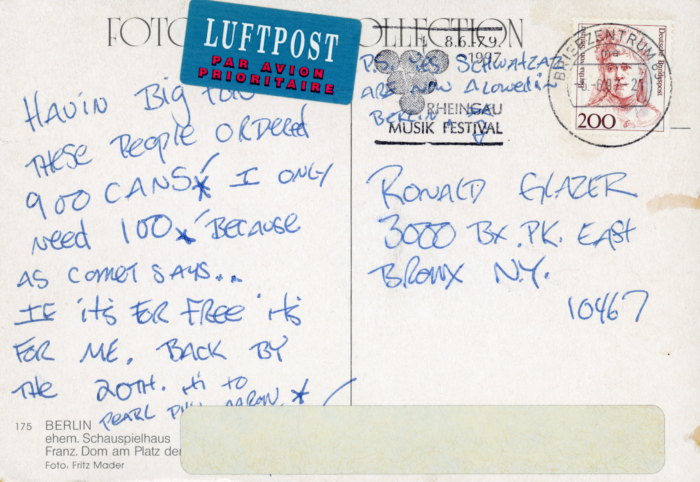 FOTO OLLECTION
LUFTPOST
PAR AVION
PRIORITAIRE
8.6.-7.9.
1997
RHEINGAU
MUSIK FESTIVAL
BRIEFZENTRUM
21
Deutsche Bundespost
Bertha von Suttner
200
P.S. YES SCHWATZAZ
ARE NOW ALOWED IN
BERLIN
HAVIN BIG FUN
THESE PEOPLE ORDERED
900 CANS I ONLY
NEED 100 BECAUSE
AS COMET SAYS..
IF it's FOR FREE it's
FOR ME. BACK BY
THE 20TH. Hi to
PEARL PHIL AARON.
RONALD GLAZER
3000 BX. PK. EAST
BRONX N.Y.
10467
175 BERLIN
ehem. Schauspielhaus
Franz. Dom am Platz der
Foto. Fritz Mader